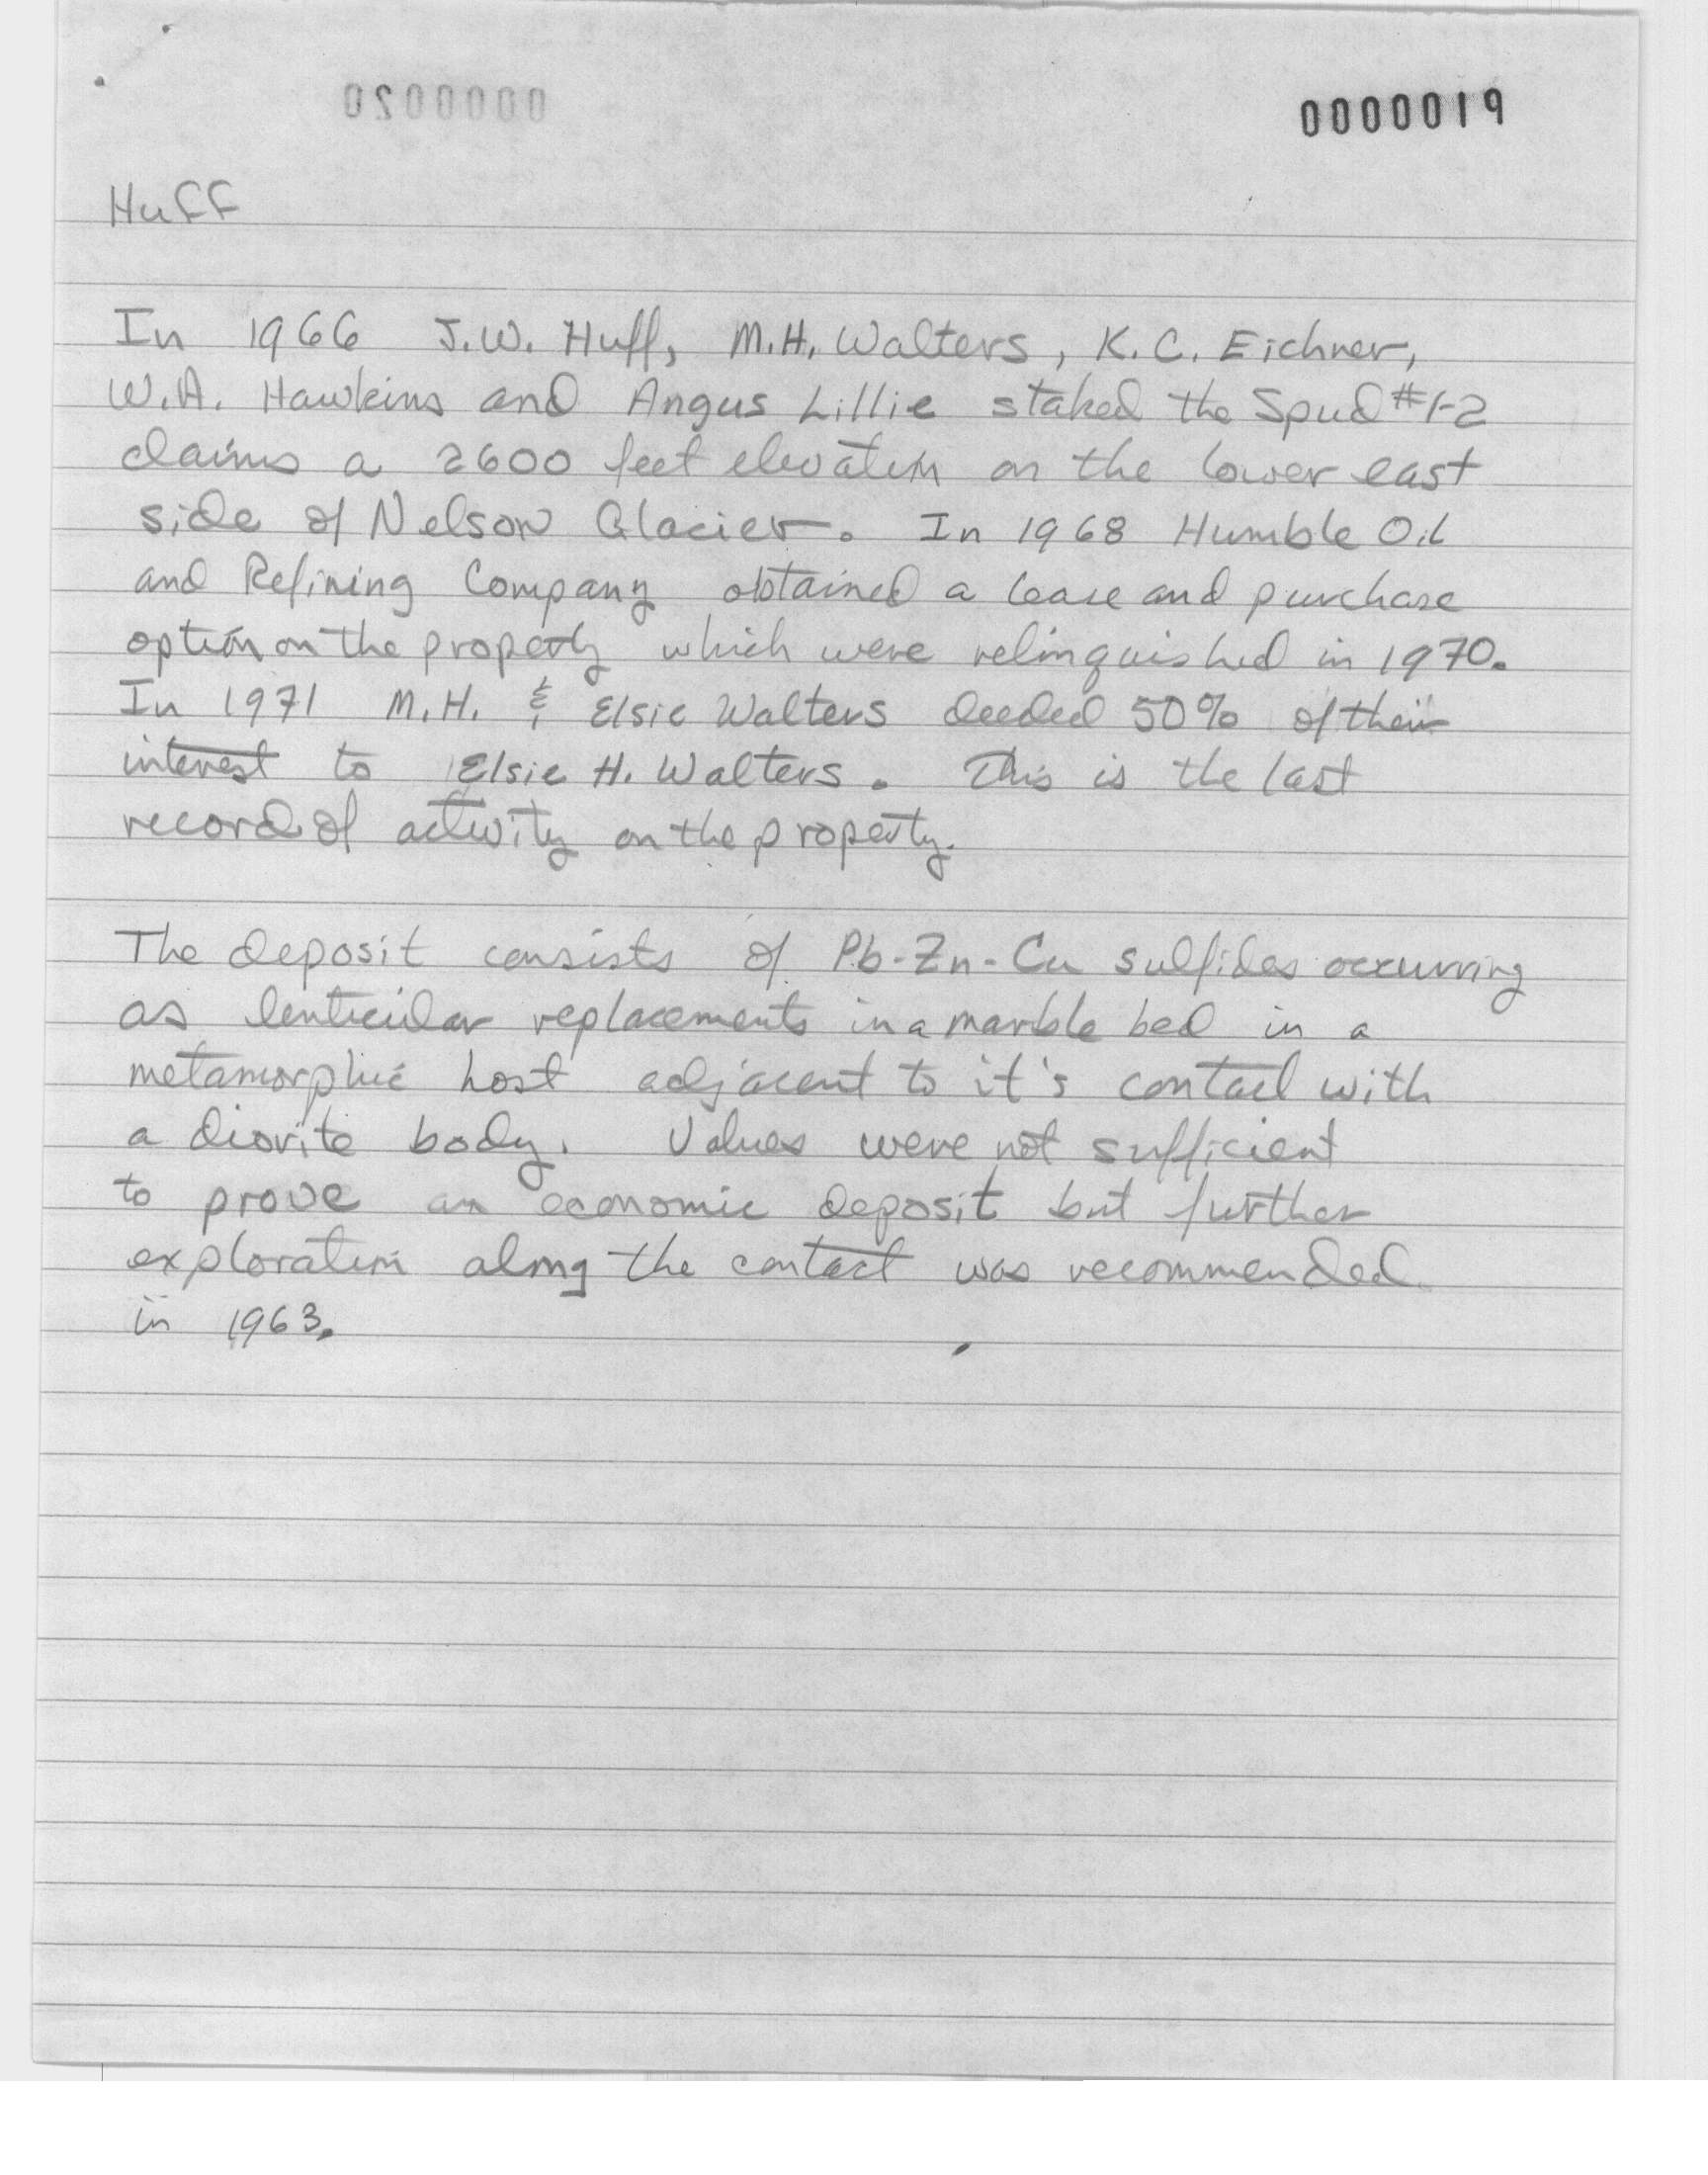 0000020
0000019
Huff
In 1966 J.W. Huff, M.H. Walters, K.C. Eichner,
W.A. Hawkins and Angus Lillie staked the Spud #1-2
claims a 2600 feet elevation on the lower east
side of Nelson Glacier. In 1968 Humble Oil
and Refining Company obtained a lease and purchase
option on the property which were relinquished in 1970.
In 1971 M.H. & Elsie Walters deeded 50% of their
interest to Elsie H. Walters. This is the last
record of activity on the property.
The deposit consists of Pb-Zn-Cu sulfides occurring
as lenticular replacements in a marble bed in a
metamorphic host adjacent to it's contact with
a diorite body. Values were not sufficient
to prove an economic deposit but further
exploration along the contact was recommended
in 1963.